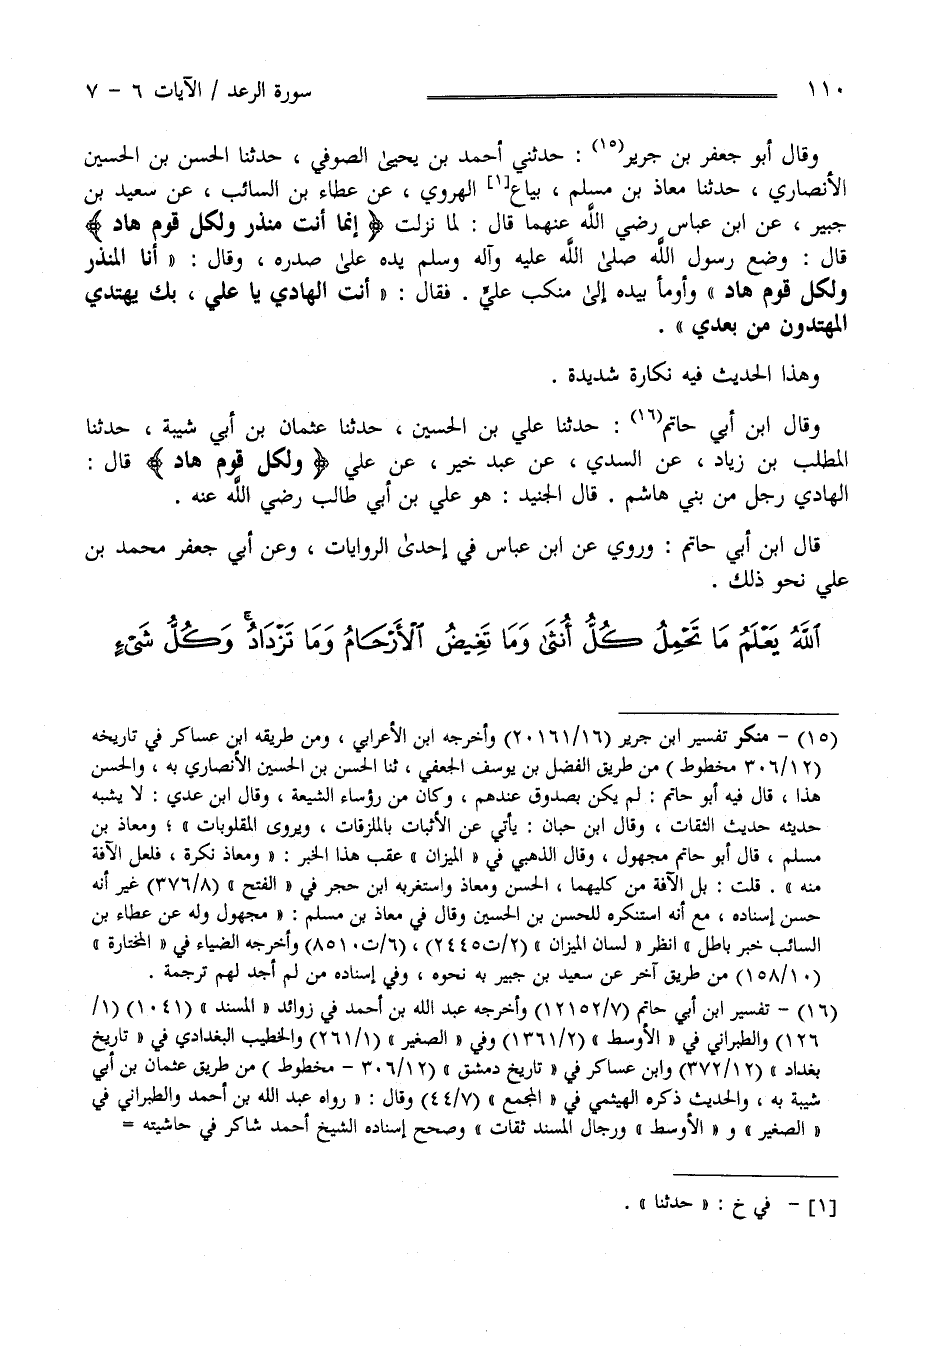 ١١٠ سورة الرعد / الآيات ٦ – ٧
وقال أبو جعفر بن جرير(١٥) : حدثني أحمد بن يحيىٰ الصوفي ، حدثنا الحسن بن الحسين
الأنصاري ، حدثنا معاذ بن مسلم ، بياع[١] الهروي ، عن عطاء بن السائب ، عن سعيد بن
جبير ، عن ابن عباس رضي اللَّه عنهما قال : لما نزلت ﴿ إنما أنت منذر ولكل قوم هاد ﴾
قال : وضع رسول اللَّه صلىٰ اللَّه عليه وآله وسلم يده علىٰ صدره ، وقال : « أنا المنذر
ولكل قوم هاد » وأومأ بيده إلىٰ منكب عليٍّ . فقال : « أنت الهادي يا علي ، بك يهتدي
المهتدون من بعدي » .
وهذا الحديث فيه نكارة شديدة .
وقال ابن أبي حاتم(١٦) : حدثنا علي بن الحسين ، حدثنا عثمان بن أبي شيبة ، حدثنا
المطلب بن زياد ، عن السدي ، عن عبد خير ، عن علي ﴿ ولكل قوم هاد ﴾ قال :
الهادي رجل من بني هاشم . قال الجنيد : هو علي بن أبي طالب رضي اللَّه عنه .
قال ابن أبي حاتم : وروي عن ابن عباس في إحدىٰ الروايات ، وعن أبي جعفر محمد بن
علي نحو ذلك .
ٱللَّهُ يَعْلَمُ مَا تَحْمِلُ كُلُّ أُنثَىٰ وَمَا تَغِيضُ ٱلْأَرْحَامُ وَمَا تَزْدَادُ ۚ وَكُلُّ شَىْءٍ
(١٥) – منكر تفسير ابن جرير (٢٠١٦١/١٦) وأخرجه ابن الأعرابي ، ومن طريقه ابن عساكر في تاريخه
(٣٠٦/١٢ مخطوط ) من طريق الفضل بن يوسف الجعفي ، ثنا الحسن بن الحسين الأنصاري به ، والحسن
هذا ، قال فيه أبو حاتم : لم يكن بصدوق عندهم ، وكان من رؤساء الشيعة ، وقال ابن عدي : لا يشبه
حديثه حديث الثقات ، وقال ابن حبان : يأتي عن الأثبات بالملزقات ، ويروى المقلوبات » ؛ ومعاذ بن
مسلم ، قال أبو حاتم مجهول ، وقال الذهبي في « الميزان » عقب هذا الخبر : « ومعاذ نكرة ، فلعل الآفة
منه » . قلت : بل الآفة من كليهما ، الحسن ومعاذ واستغربه ابن حجر في « الفتح » (٣٧٦/٨) غير أنه
حسن إسناده ، مع أنه استنكره للحسن بن الحسين وقال في معاذ بن مسلم : « مجهول وله عن عطاء بن
السائب خبر باطل » انظر « لسان الميزان » (٢/ت٢٤٤٥) ، (٦/ت٨٥١٠) وأخرجه الضياء في « المختارة »
(١٥٨/١٠) من طريق آخر عن سعيد بن جبير به نحوه ، وفي إسناده من لم أجد لهم ترجمة .
(١٦) – تفسير ابن أبي حاتم (١٢١٥٢/٧) وأخرجه عبد الله بن أحمد في زوائد « المسند » (١٠٤١) (١/
١٢٦) والطبراني في « الأوسط » (١٣٦١/٢) وفي « الصغير » (٢٦١/١) والخطيب البغدادي في « تاريخ
بغداد » (٣٧٢/١٢) وابن عساكر في « تاريخ دمشق » (٣٠٦/١٢ – مخطوط ) من طريق عثمان بن أبي
شيبة به ، والحديث ذكره الهيثمي في « المجمع » (٤٤/٧) وقال : « رواه عبد الله بن أحمد والطبراني في
« الصغير » و « الأوسط » ورجال المسند ثقات » وصحح إسناده الشيخ أحمد شاكر في حاشيته =
[١] – في خ : « حدثنا » .